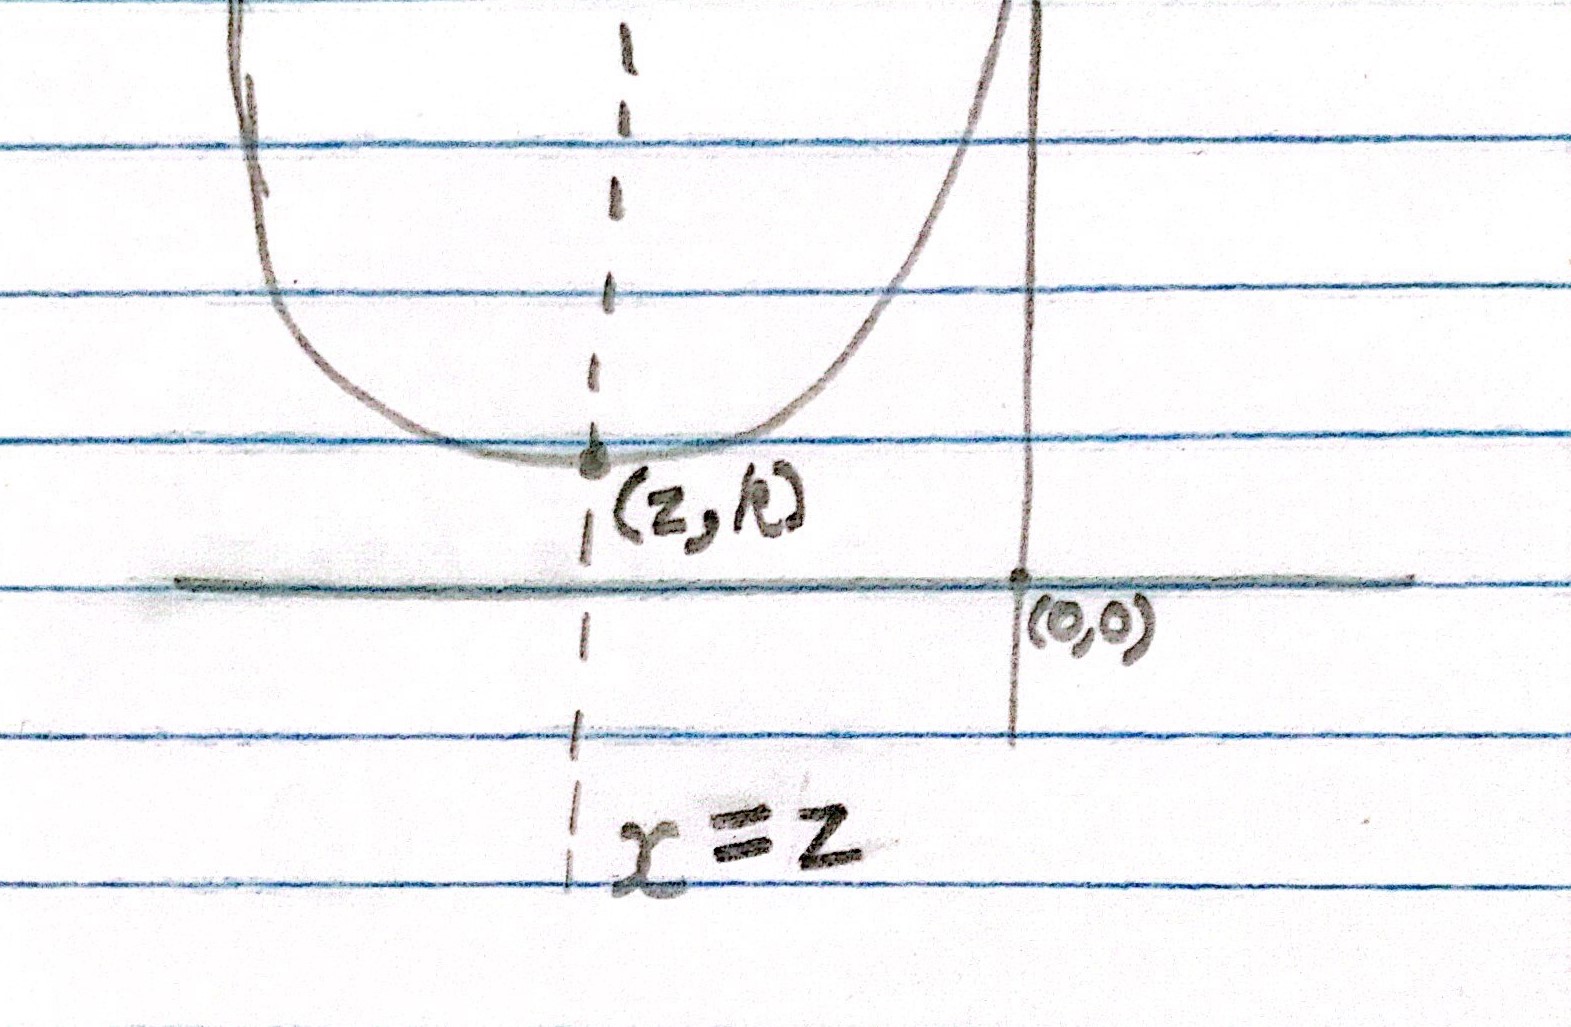 (z, k)
(0,0)
x = z